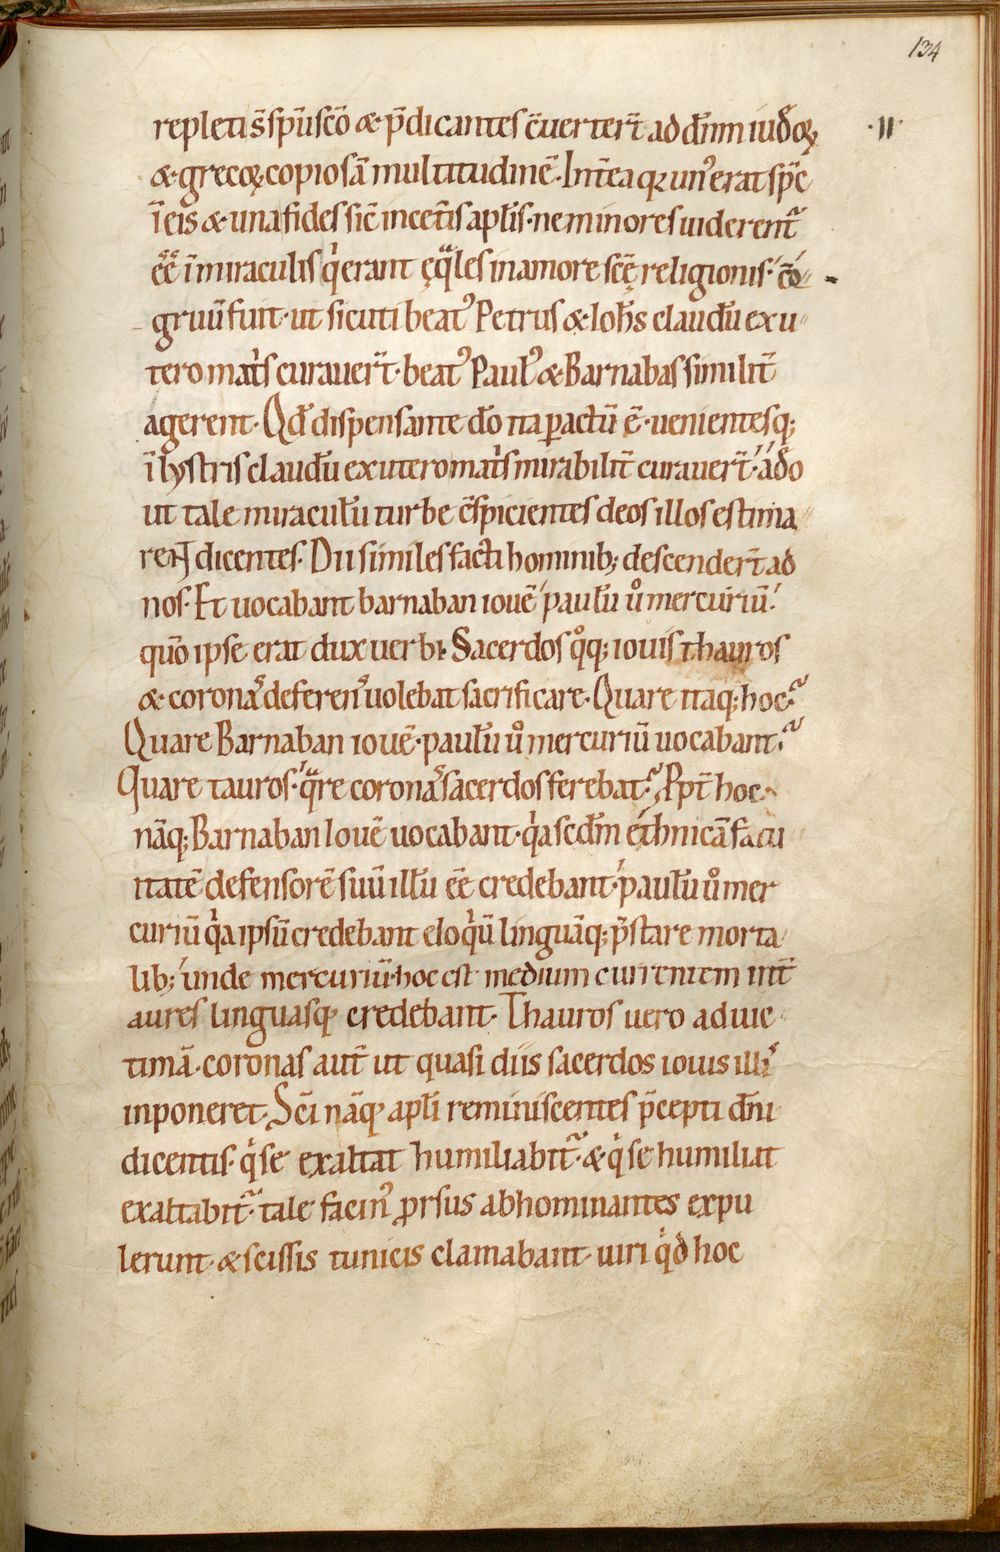 134
repleti s̄ sp̄u sc̄o & p̄dicantes c̄uerter̄t ad dn̄m iudeoꝝ ·II·
& grecoꝝ copiosā multitudinē. Int̄ea qꝛ un᾽ erat sp̄c
ī eis & una fides sic̄ in cet̄is apl̄is. ne minores uiderent᷑
ēē ī miraculis q̍ erant ęq̄les in amore scę̄ religionis. cō
gruū fuit. ut sicuti beat᾽ Petrus & Ioh̄s claudū ex u
tero mat̍s curauer̄t. beat᾽ Paul᾽ & Barnabas similit̄
agerent. Qđ dispensante dō ita ꝑactū ē. uenientesq;
ī lystris claudū ex utero mat̍s mirabilit̄ curauer̄t. adō
ut tale miraculū turbe c̄spicientes deos illos estima
reNT dicentes. Dii similes facti hominib; descender̄t ad
nos. Et uocabant barnaban iouē paulū u᷈o mercuriū.
quō ipse erat dux uerbi. Sacerdos qͦq; iouis thauros
& corona᷒ deferen᷒ uolebat sacrificare. Quare itaq; hoc?
Quare Barnaban iouē. paulū uͦ mercuriū uocabant?
Quare tauros. qᷓre corona᷒ sacerdos ferebat? Ꝓpt̄ hoc
nāq; Barnaban Iouē uocabant. q̍a scdm̄ ethnicā facu
itatē defensorē suū illū ēē credebant. paulū uͦ mer
curiū q̍a ipsū credebant eloq̍ū linguāq; p̄stare morta
lib; unde mercuriū. hoc est medium currentem int̄
aures linguasq; credebant. Thauros uero ad uic
timā. coronas aut̄ ut quasi diis sacerdos iouis illi᷒
inponeret. Sc̄i nāq; apl̄i reminiscentes p̄cepti dn̄i
dicentis. q̍ se exaltat humiliabit᷑. & q̍ se humiliat
exaltabit᷑. tale facin᾽ ꝓrsus abhominantes expu
lerunt. & scissis tunicis clamabant. uiri q̍d hoc